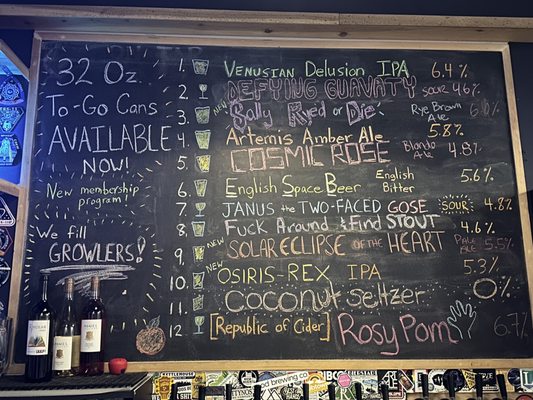 32 Oz
To-Go Cans
AVAILABLE
NOW!
New membership
program!
We fill
GROWLERS!
1. VENUSIAN Delusion IPA 6.4%
2. DEFYING GURAVITY SOUR 4.6%
3. NEW Sally Ryed or Die Rye Brown Ale 6.0%
4. Artemis Amber Ale 5.8%
5. COSMIC ROSE Blonde Ale 4.8%
6. English Space Beer English Bitter 5.6%
7. JANUS the TWO-FACED GOSE SOUR 4.8%
8. Fuck Around & Find STOUT 4.6%
9. NEW SOLAR ECLIPSE OF THE HEART Pale Ale 5.5%
10. NEW OSIRIS-REX IPA 5.3%
11. Coconut Seltzer 0%
12 [Republic of Cider] Rosy Pom 6.7%